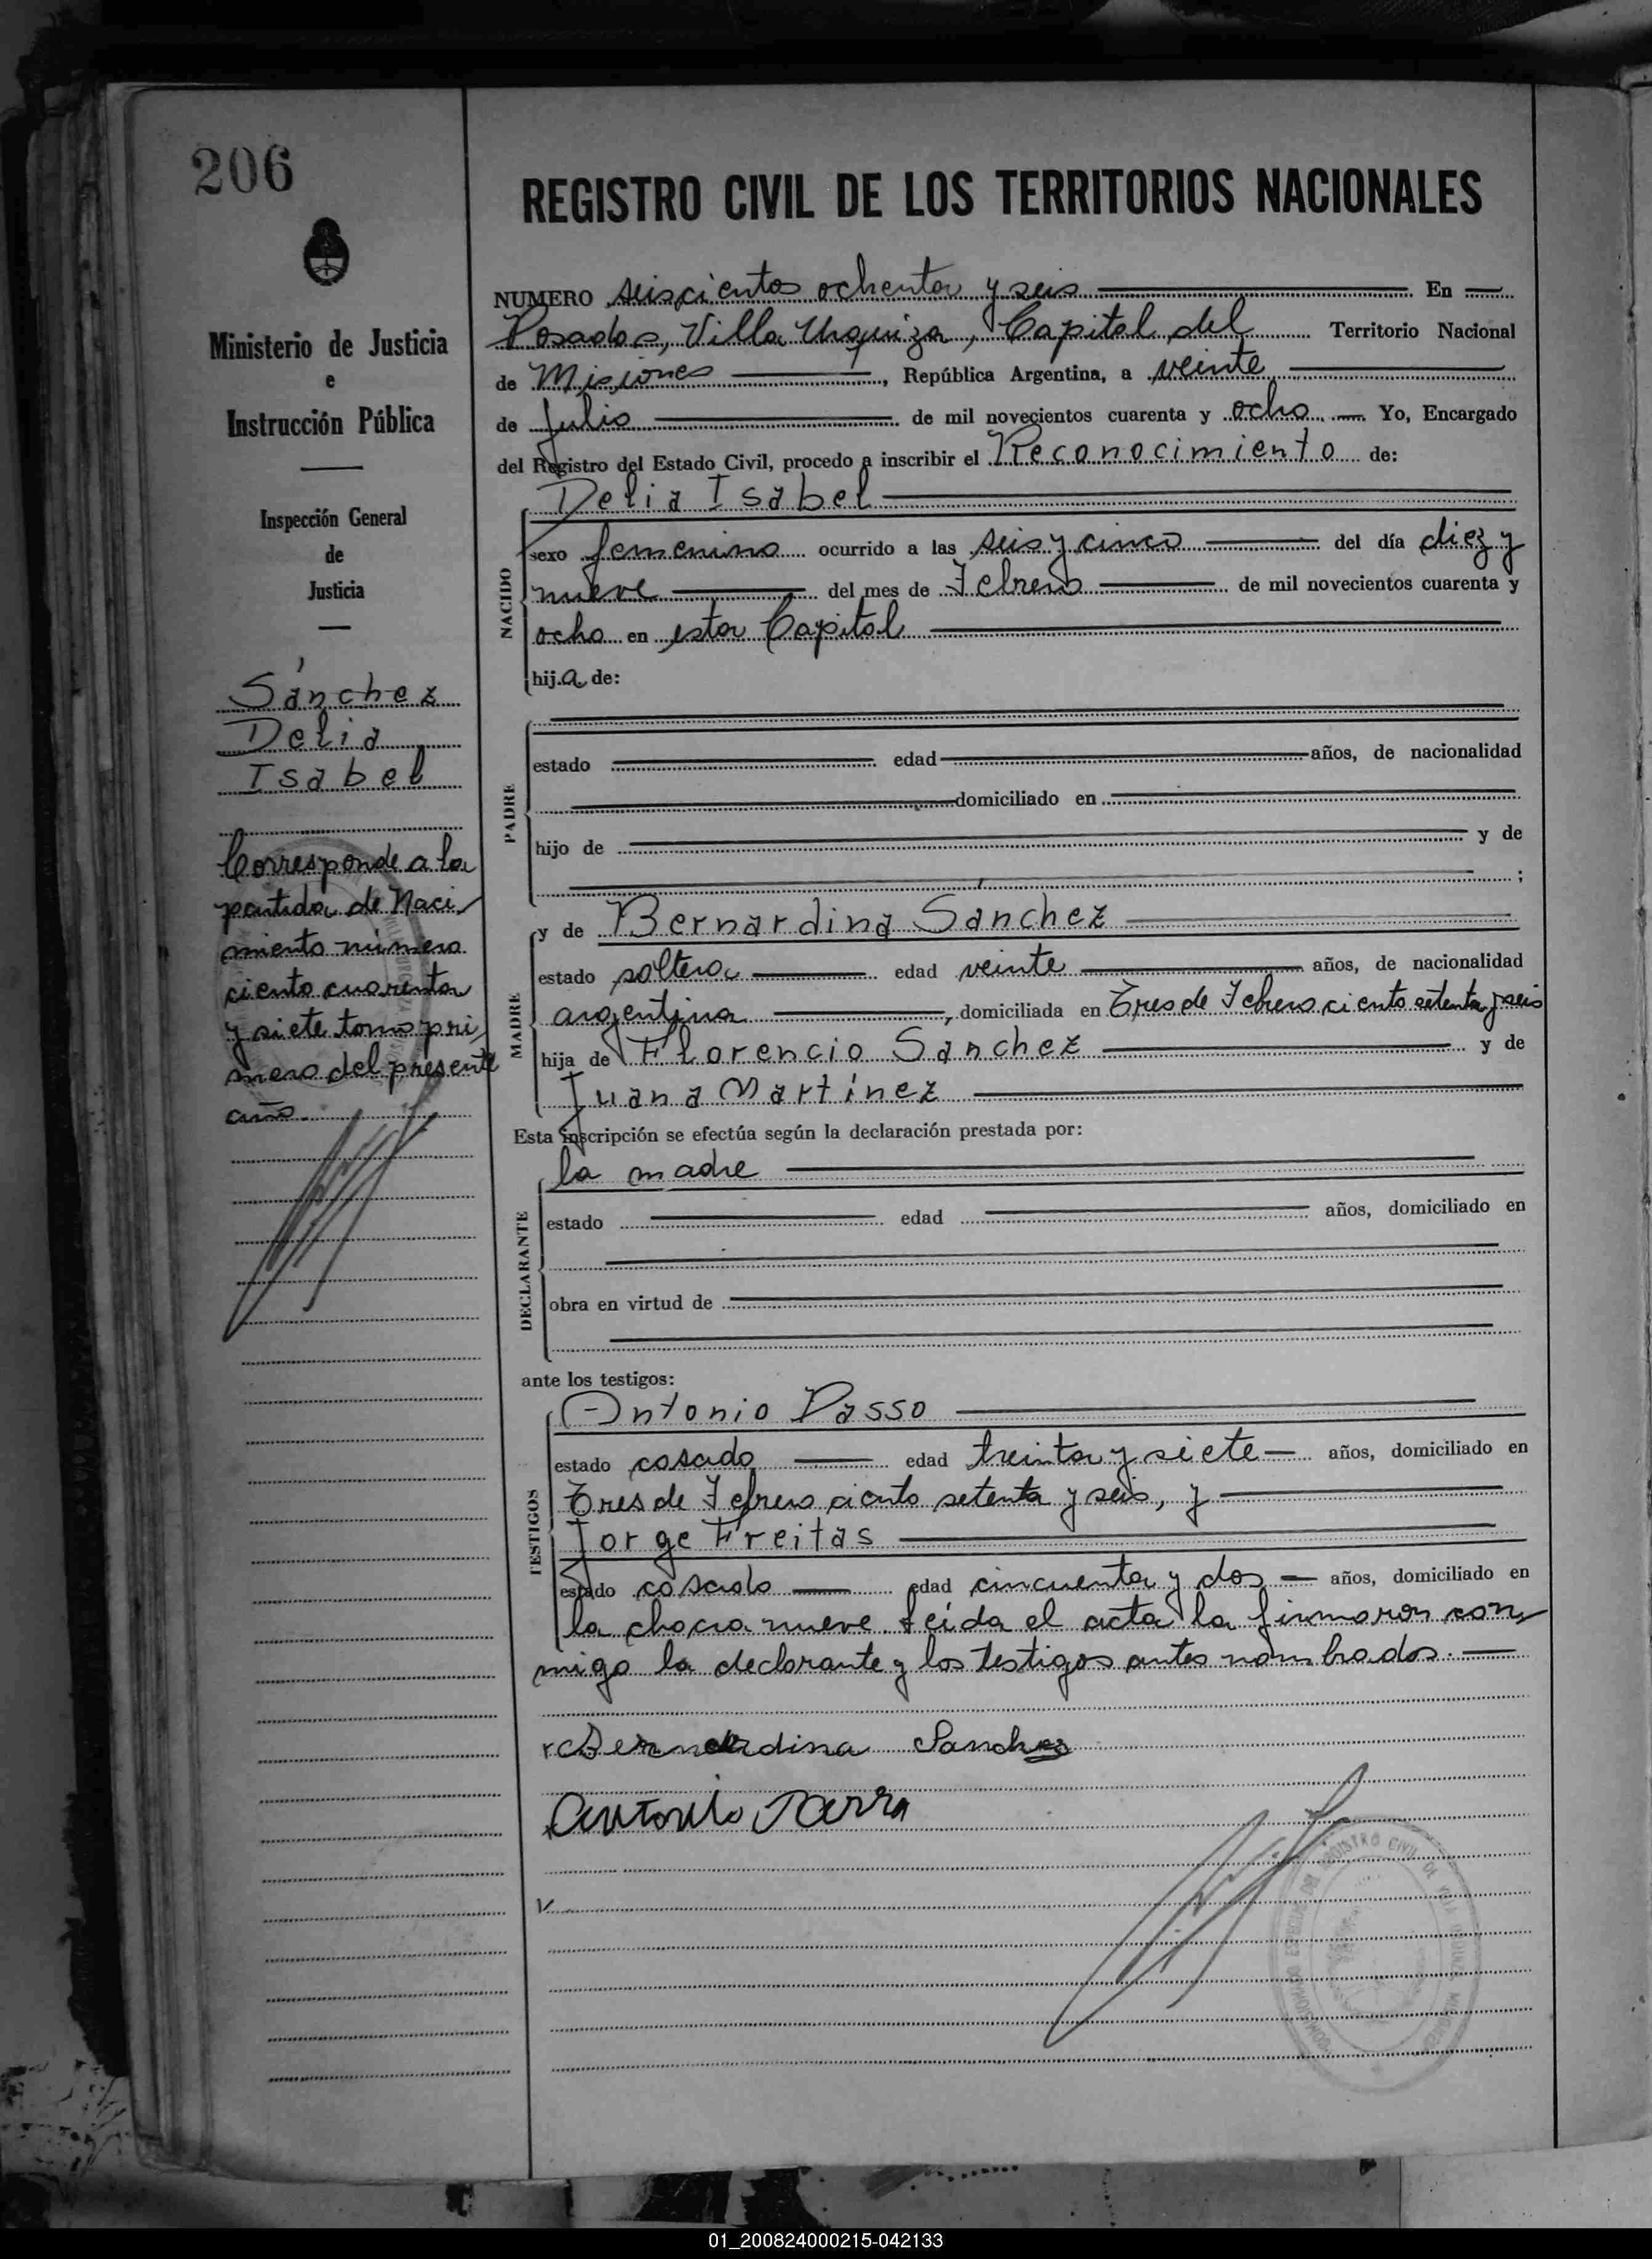 206
Ministerio de Justicia
e
Instrucción Pública
Inspección General
de
Justicia
Sánchez
Delia
Isabel
Corresponde a la
partida de Naci-
miento número
ciento cuarenta
y siete tomo pri-
mero del presente
año.
REGISTRO CIVIL DE LOS TERRITORIOS NACIONALES
NUMERO seiscientos ochenta y seis En
Posadas, Villa Urquiza, Capital del Territorio Nacional
de Misiones, República Argentina, a veinte
de Julio de mil novecientos cuarenta y ocho Yo, Encargado
del Registro del Estado Civil, procedo a inscribir el Reconocimiento de:
Delia Isabel
NACIDO
sexo femenino ocurrido a las seis y cinco del día diez y
nueve del mes de Febrero de mil novecientos cuarenta y
ocho en esta Capital
hija de:
PADRE
estado edad años, de nacionalidad
domiciliado en
hijo de y de
;
MADRE
y de Bernardina Sánchez
estado soltera edad veinte años, de nacionalidad
argentina, domiciliada en Tres de Febrero ciento setenta y seis
hija de Florencio Sanchez y de
Juana Martínez
Esta inscripción se efectúa según la declaración prestada por:
la madre
DECLARANTE
estado edad años, domiciliado en
obra en virtud de
ante los testigos:
TESTIGOS
Antonio Passo
estado casado edad treinta y siete años, domiciliado en
Tres de Febrero ciento setenta y seis, y
Jorge Freitas
estado casado edad cincuenta y dos años, domiciliado en
la chacra nueve. Leída el acta la firmaron con-
migo la declarante y los testigos antes nombrados.
Bernardina Sanchez
Antonio
REGISTRO CIVIL DE VILLA URQUIZA MISIONES
01_200824000215-042133